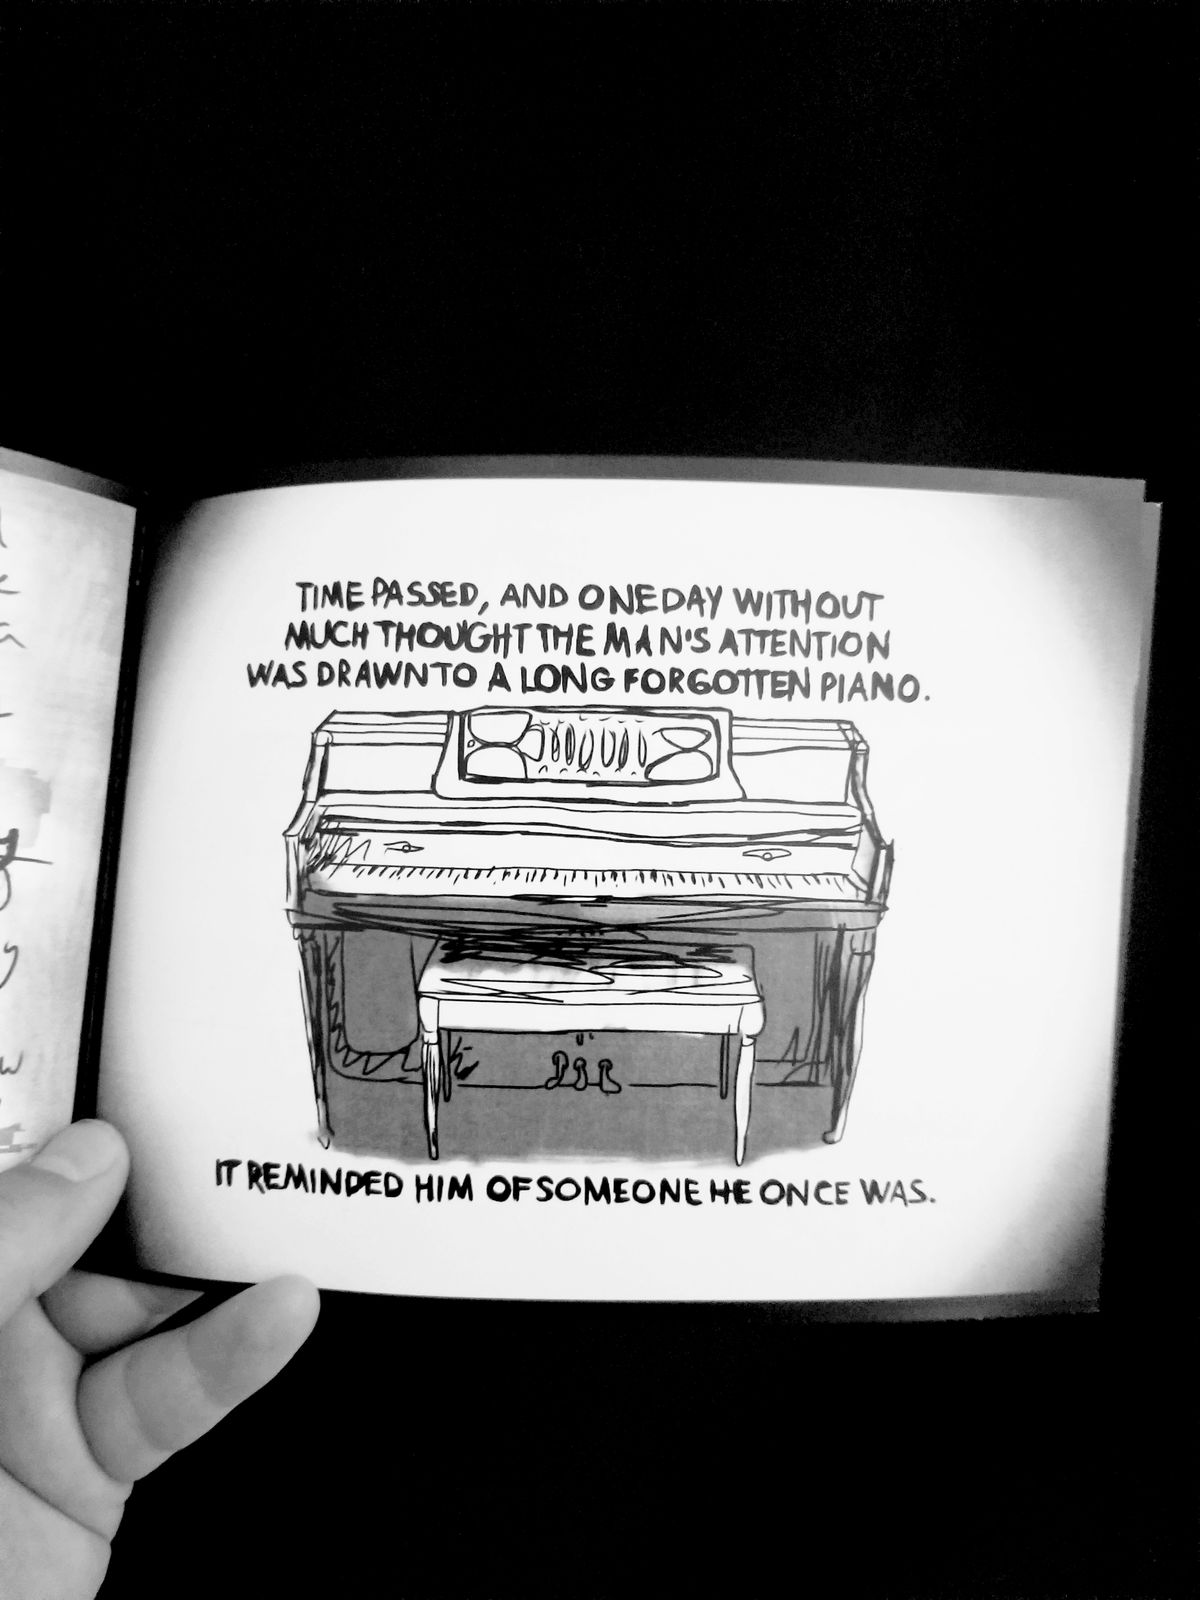 TIME PASSED, AND ONE DAY WITHOUT
MUCH THOUGHT THE MAN'S ATTENTION
WAS DRAWN TO A LONG FORGOTTEN PIANO.
IT REMINDED HIM OF SOMEONE HE ONCE WAS.